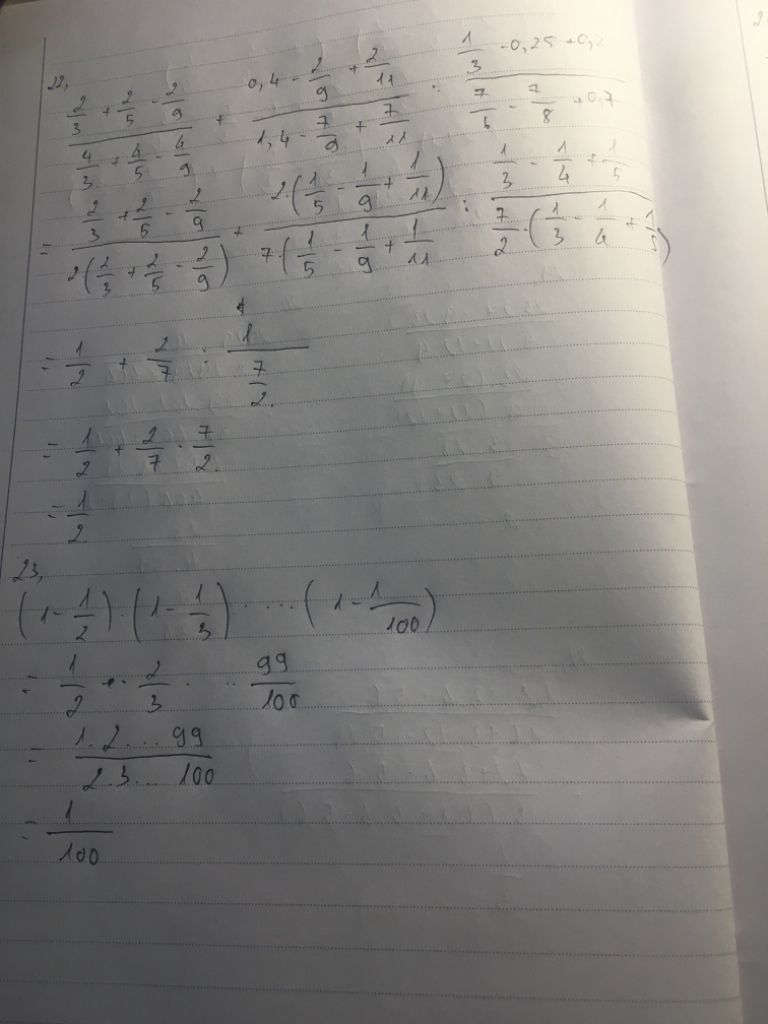 22,
\frac{\frac{2}{3} + \frac{2}{5} - \frac{2}{9}}{\frac{4}{3} + \frac{4}{5} - \frac{4}{9}} + \frac{0,4 - \frac{2}{9} + \frac{2}{11}}{1,4 - \frac{7}{9} + \frac{7}{11}} : \frac{\frac{1}{3} - 0,25 + 0,}{\frac{7}{6} - \frac{7}{8} + 0,7}
= \frac{\frac{2}{3} + \frac{2}{5} - \frac{2}{9}}{2(\frac{2}{3} + \frac{2}{5} - \frac{2}{9})} + \frac{2.(\frac{1}{5} - \frac{1}{9} + \frac{1}{11})}{7.(\frac{1}{5} - \frac{1}{9} + \frac{1}{11}} : \frac{\frac{1}{3} - \frac{1}{4} + \frac{1}{5}}{\frac{7}{2}.(\frac{1}{3} - \frac{1}{4} + \frac{1}{5})}
= \frac{1}{2} + \frac{2}{7} : \frac{1}{\frac{7}{2}}
= \frac{1}{2} + \frac{2}{7} . \frac{7}{2}
= \frac{1}{2}
23,
(1 - \frac{1}{2}) . (1 - \frac{1}{3}) . ... (1 - \frac{1}{100})
= \frac{1}{2} . \frac{2}{3} . .. \frac{99}{100}
= \frac{1.2 ... 99}{2.3 ... 100}
= \frac{1}{100}